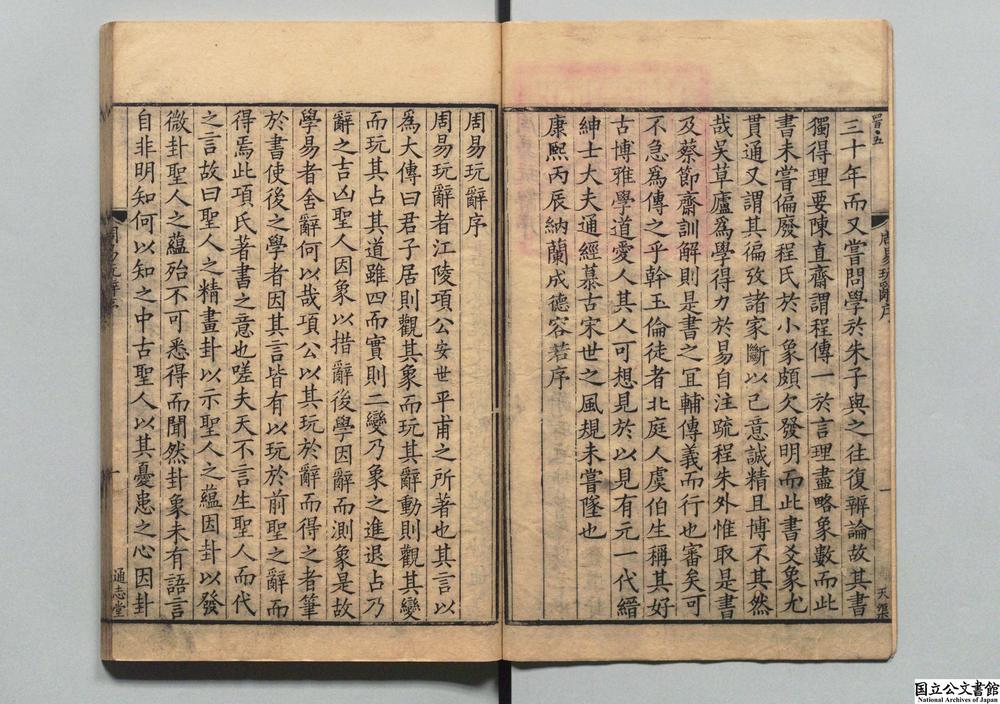 三十年而又嘗問學於朱子與之往復辨論故其書
獨得理要陳直齋謂程傳一於言理盡略象數而此
書未嘗偏廢程氏於小象頗欠發明而此書爻象尤
貫通又謂其徧攷諸家斷以己意誠精且博不其然
哉吴草廬爲學得力於易自注疏程朱外惟取是書
及蔡節齋訓解則是書之冝輔傳義而行也審矣可
不急爲傳之乎幹玉倫徒者北庭人虞伯生稱其好
古博雅學道愛人其人可想見於以見有元一代縉
紳士大夫通經慕古宋世之風規未嘗墜也
康熙丙辰納蘭成德容若序
周易玩辭序
一
天渠
周易玩辭序
周易玩辭者江陵項公安世平甫之所著也其言以
爲大傳曰君子居則觀其象而玩其辭動則觀其變
而玩其占其道雖四而實則二變乃象之進退占乃
辭之吉凶聖人因象以措辭後學因辭而測象是故
學易者舍辭何以哉項公以其玩於辭而得之者筆
於書使後之學者因其言皆有以玩於前聖之辭而
得焉此項氏著書之意也嗟夫天不言生聖人而代
之言故曰聖人之精畫卦以示聖人之蘊因卦以發
微卦聖人之蘊殆不可悉得而聞然卦象未有語言
自非明知何以知之中古聖人以其憂患之心因卦
周易玩辭序
一
通志堂
国立公文書館
National Archives of Japan